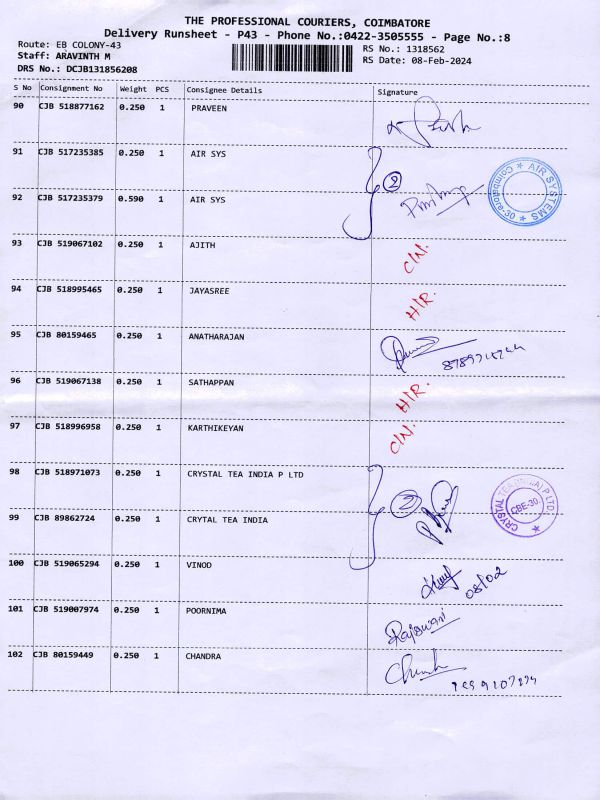 THE PROFESSIONAL COURIERS, COIMBATORE
Delivery Runsheet - P43 - Phone No.:0422-3505555 - Page No.:8
Route: EB COLONY-43
RS No.: 1318562
Staff: ARAVINTH M
RS Date: 08-Feb-2024
DRS No.: DCJB131856208
S No Consignment No Weight PCS Consignee Details Signature
90 CJB 518877162 0.250 1 PRAVEEN
91 CJB 517235385 0.250 1 AIR SYS
2
AIR SYSTEMS * Coimbatore-30 *
92 CJB 517235379 0.590 1 AIR SYS
93 CJB 519067102 0.250 1 AJITH C/N.
94 CJB 518995465 0.250 1 JAYASREE H/R.
95 CJB 80159465 0.250 1 ANATHARAJAN
96 CJB 519067138 0.250 1 SATHAPPAN H/R.
97 CJB 518996958 0.250 1 KARTHIKEYAN C/N.
98 CJB 518971073 0.250 1 CRYSTAL TEA INDIA P LTD
2
CRYSTAL TEA (INDIA) P LTD. * CBE-30.
99 CJB 89862724 0.250 1 CRYTAL TEA INDIA
100 CJB 519065294 0.250 1 VINOD 08/02
101 CJB 519007974 0.250 1 POORNIMA
102 CJB 80159449 0.250 1 CHANDRA